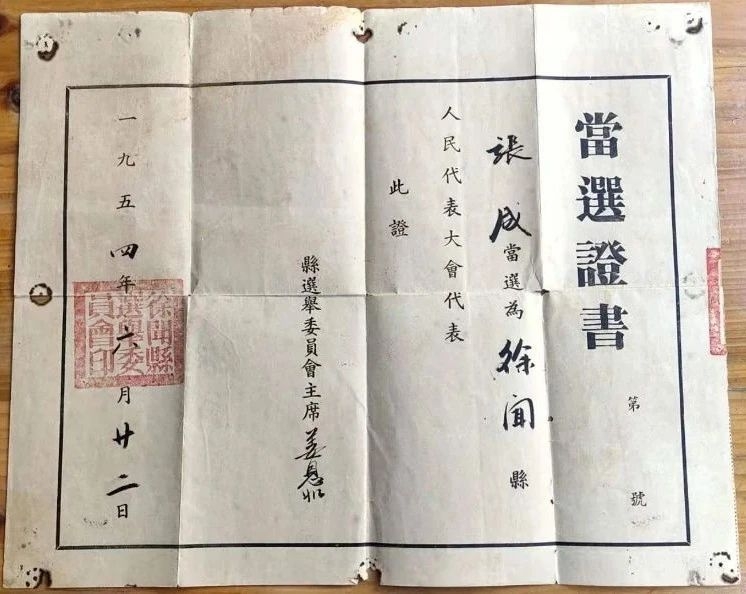 當選證書
第 號
張成當選為徐聞縣
人民代表大會代表
此證
縣選舉委員會主席 姜
一九五四年六月廿二日
徐聞縣選舉委員會印